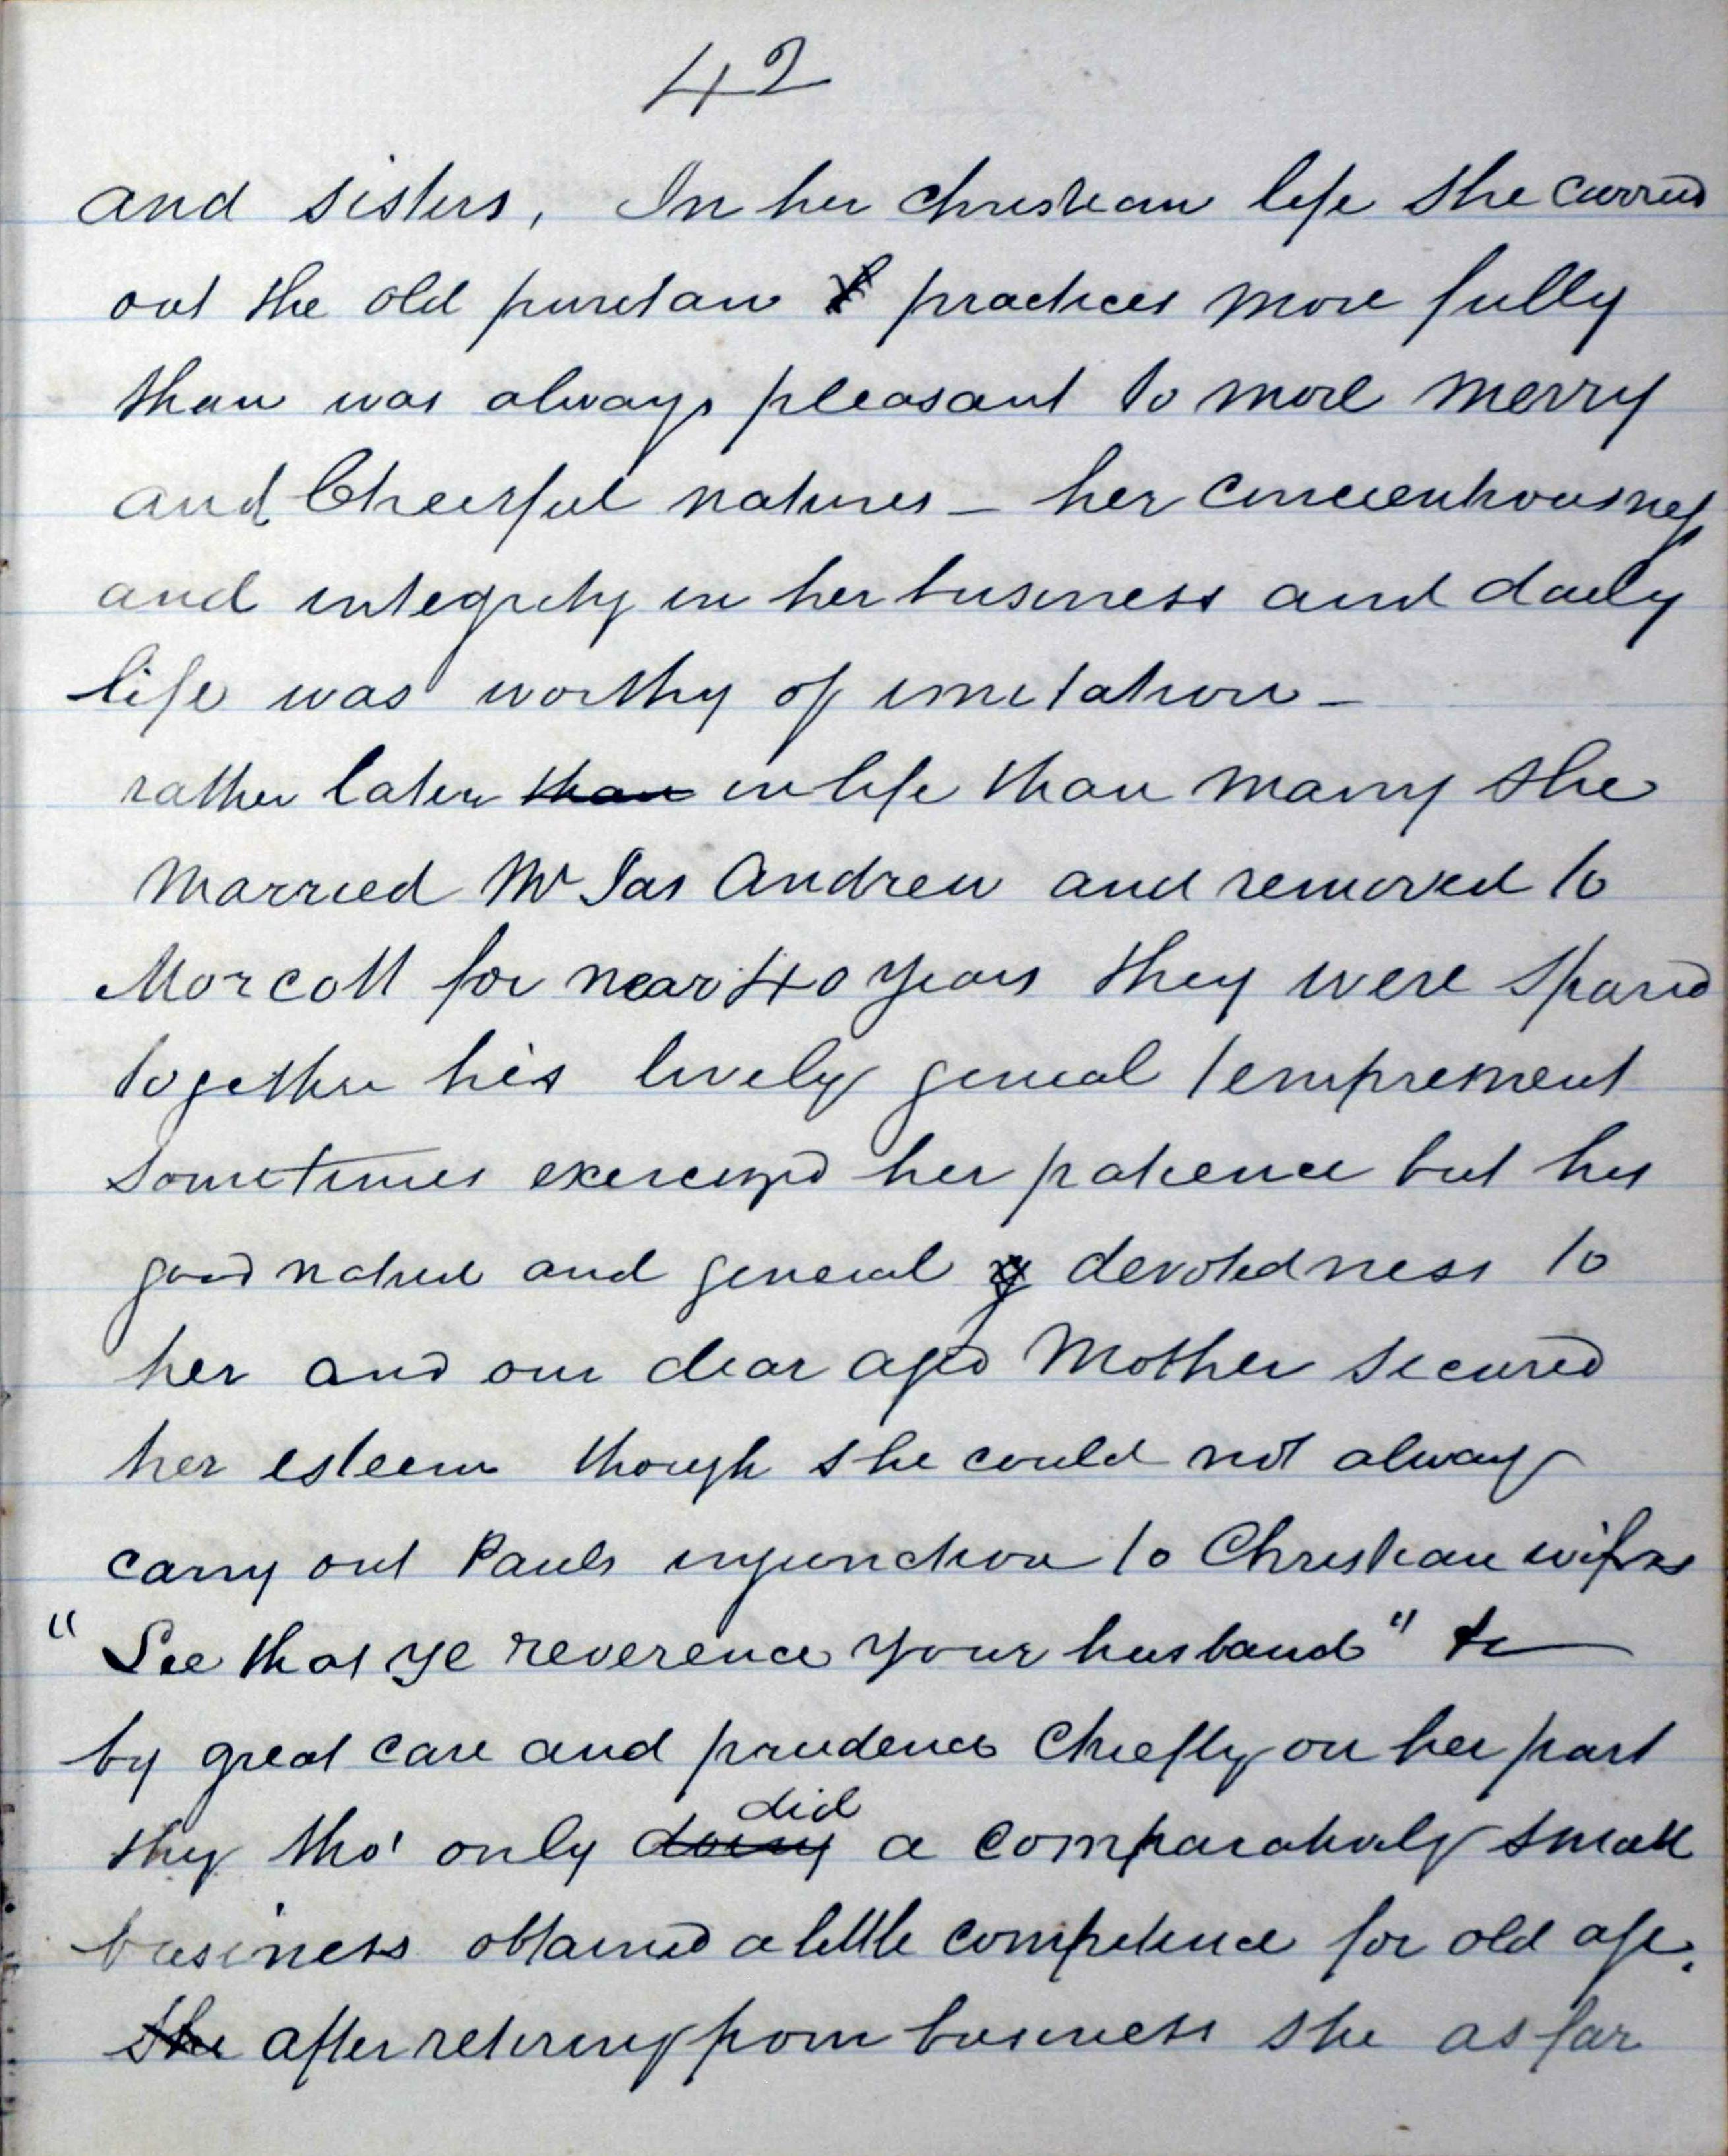 42
and sisters, In her christian life she carried
out the old puritan practices more fully
than was always pleasant to more merry
and Cheerful natures – her conscientiousness
and integrity in her business and daily
life was worthy of imitation –
rather later than in life than many she
Married Mr Jas Andrew and removed to
Morcott for near 40 years they were spared
together his lively genial temprement
sometimes exercised her patience but his
good nature and general devotedness to
her and our dear aged Mother secured
her esteem though she could not always
carry out Pauls injunction to Christian wifes
"See that ye reverence your husband" &c
by great care and prudence Chiefly on her part
they tho' only doing did a comparatively small
business obtained a little competence for old age.
She after retiring from business she as far